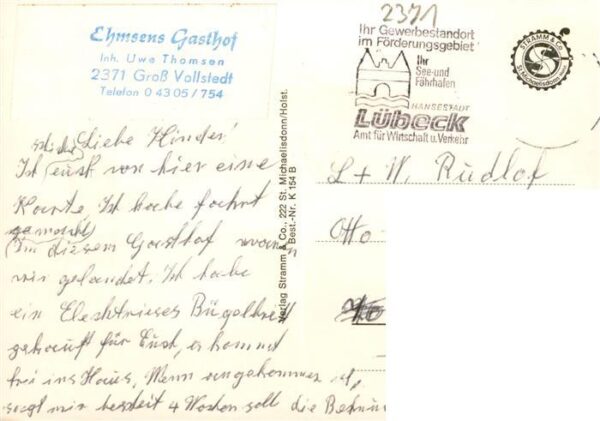 Ehmsens Gasthof
Inh. Uwe Thomsen
2371 Groß Vollstedt
Telefon 0 43 05 / 754
Liebe Kinder!
Ich Euch von hier eine
Karte. Ich habe fahrt
gemacht
In diesem Gasthof waren
wir gelandet. Ich habe
ein Elecktrieses Bügelbrett
gekauft für Euch, es kommt
frei ins Haus, Wenn angekommen ist,
sagt mir bescheit 4 Wochen soll die
Verlag Stramm & Co., 222 St. Michaelisdonn/Holst.
Best.-Nr. K 154 B
2371
Ihr Gewerbestandort
im Förderungsgebiet
Ihr
See- und
Fährhafen
HANSESTADT
LÜBECK
Amt für Wirtschaft u. Verkehr
STRAMM & CO.
St. Michaelisdonn
L + W. Rudlof
Otto-